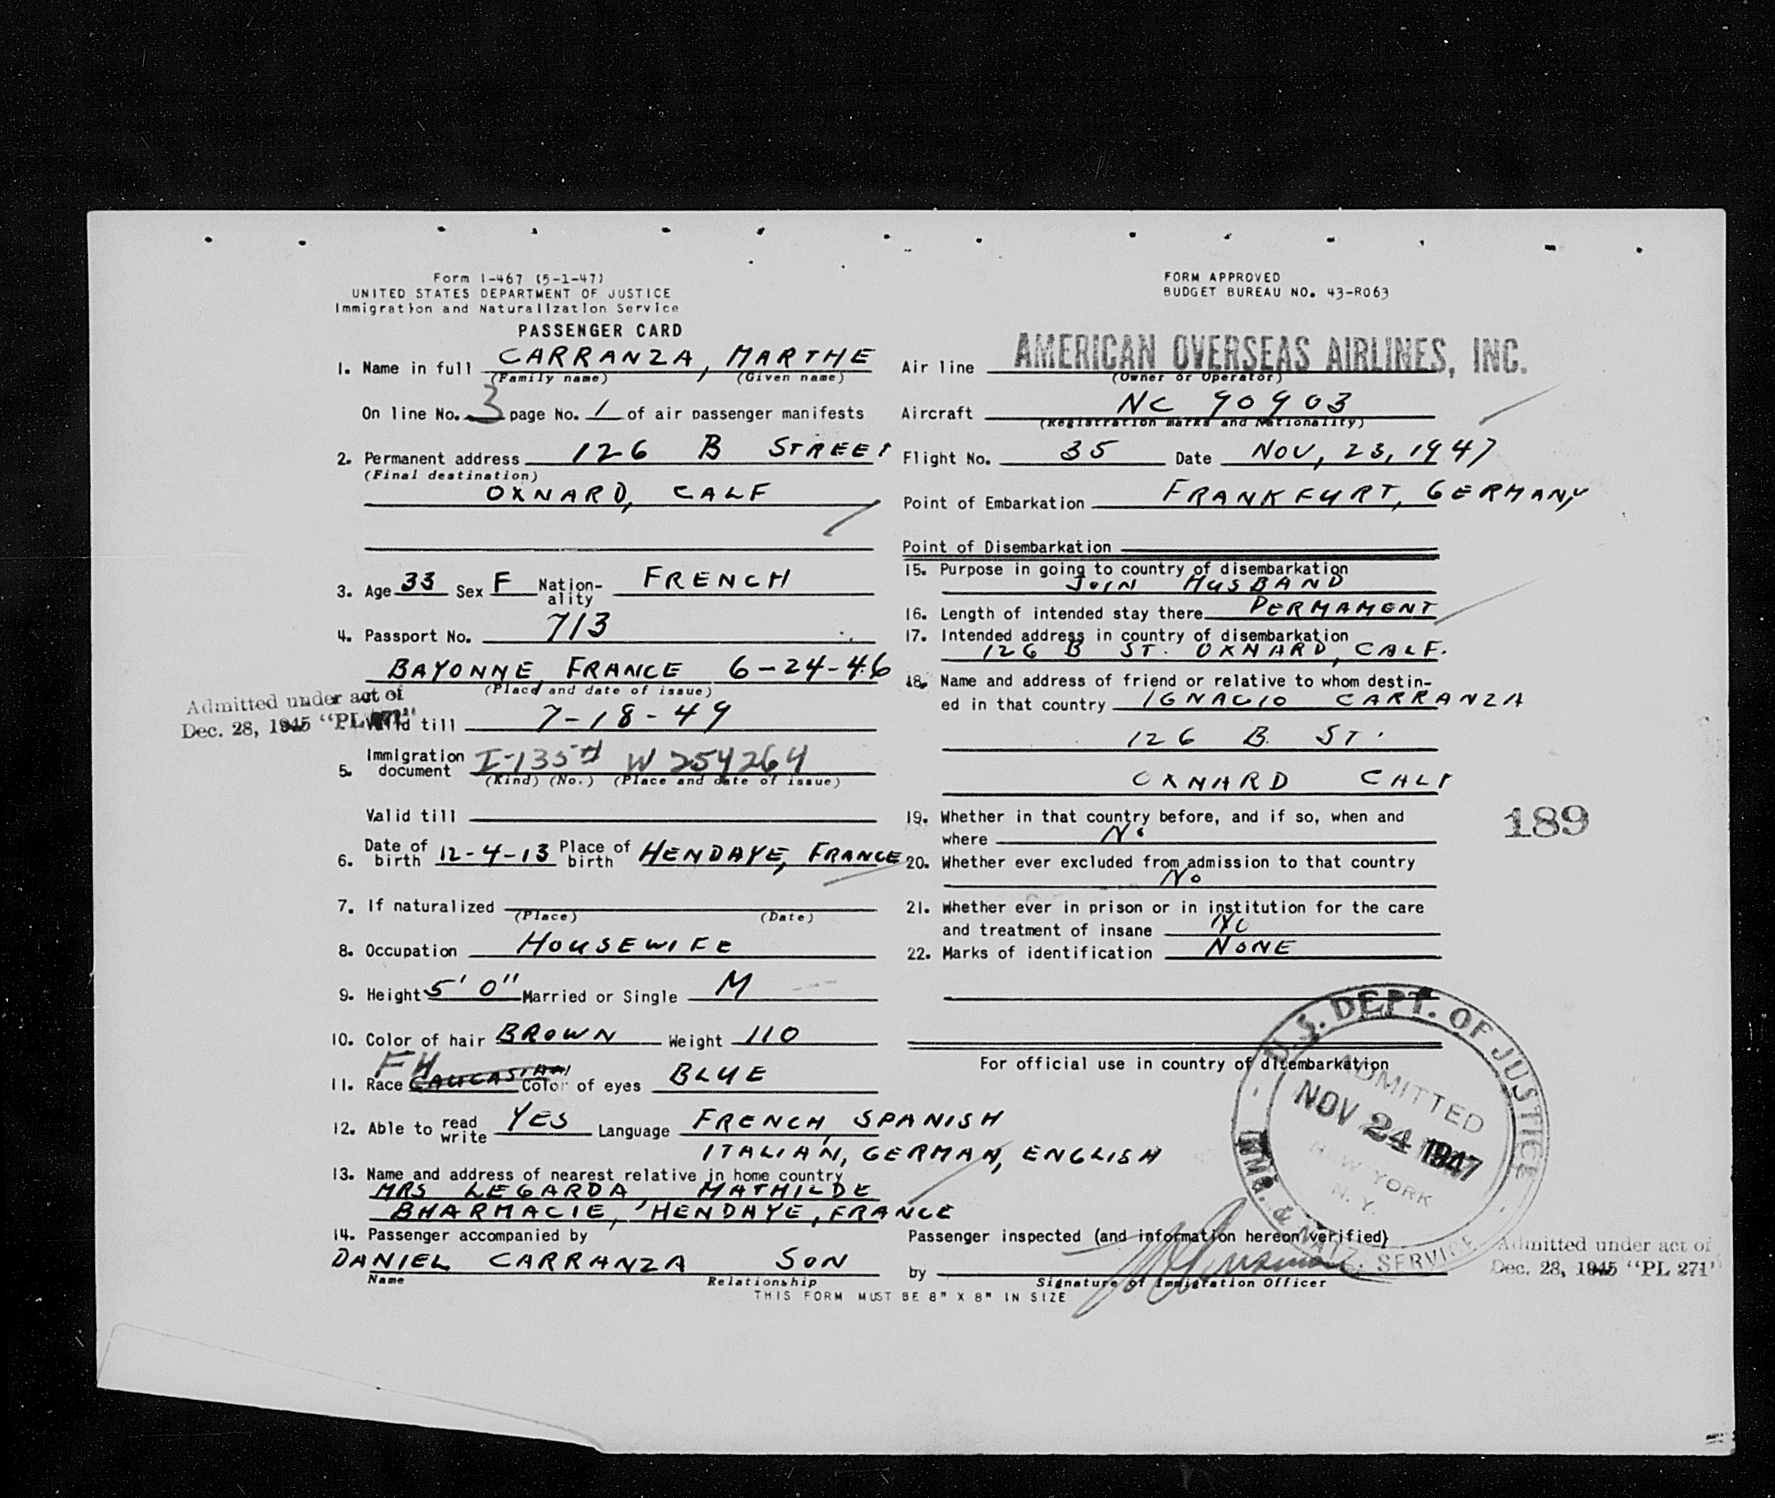 Form I-467 (5-1-47)
UNITED STATES DEPARTMENT OF JUSTICE
Immigration and Naturalization Service
PASSENGER CARD
1. Name in full CARRANZA, MARTHE
(Family name) (Given name)
On line No. 3 page No. 1 of air passenger manifests
2. Permanent address 126 B STREET
(Final destination)
OXNARD, CALF
3. Age 33 Sex F Nation-ality FRENCH
4. Passport No. 713
BAYONNE, FRANCE 6-24-46
(Place and date of issue)
Admitted under act of
Dec. 28, 1945 "PL 271"
Valid till 7-18-49
5. Immigration document I-135 W 254264
(Kind) (No.) (Place and date of issue)
Valid till
6. Date of birth 12-4-13 Place of birth HENDAYE, FRANCE
7. If naturalized
(Place) (Date)
8. Occupation HOUSEWIFE
9. Height 5' 0" Married or Single M
10. Color of hair BROWN Weight 110
FH
11. Race CAUCASIAN Color of eyes BLUE
12. Able to read write YES Language FRENCH, SPANISH
ITALIAN, GERMAN, ENGLISH
13. Name and address of nearest relative in home country
MRS LEGARDA, MATHILDE
BHARMACIE, HENDAYE, FRANCE
14. Passenger accompanied by
DANIEL CARRANZA SON
Name Relationship
THIS FORM MUST BE 8" X 8" IN SIZE
FORM APPROVED
BUDGET BUREAU NO. 43-R063
Air line AMERICAN OVERSEAS AIRLINES, INC.
(Owner or Operator)
Aircraft NC 90903
(Registration marks and Nationality)
Flight No. 35 Date NOV, 23, 1947
Point of Embarkation FRANKFURT, GERMANY
Point of Disembarkation
15. Purpose in going to country of disembarkation
JOIN HUSBAND
16. Length of intended stay there PERMAMENT
17. Intended address in country of disembarkation
126 B ST. OXNARD, CALF.
18. Name and address of friend or relative to whom destin-
ed in that country IGNACIO CARRANZA
126 B. ST.
OXNARD CALF
19. Whether in that country before, and if so, when and
where No
189
20. Whether ever excluded from admission to that country
No
21. Whether ever in prison or in institution for the care
and treatment of insane NO
22. Marks of identification NONE
For official use in country of disembarkation
U.S. DEPT. OF JUSTICE
ADMITTED
NOV 24 1947
NEW YORK
N.Y.
IMMG. & NATZ. SERVICE
Passenger inspected (and information hereon verified)
by
Signature of Immigration Officer
Admitted under act of
Dec. 28, 1945 "PL 271"